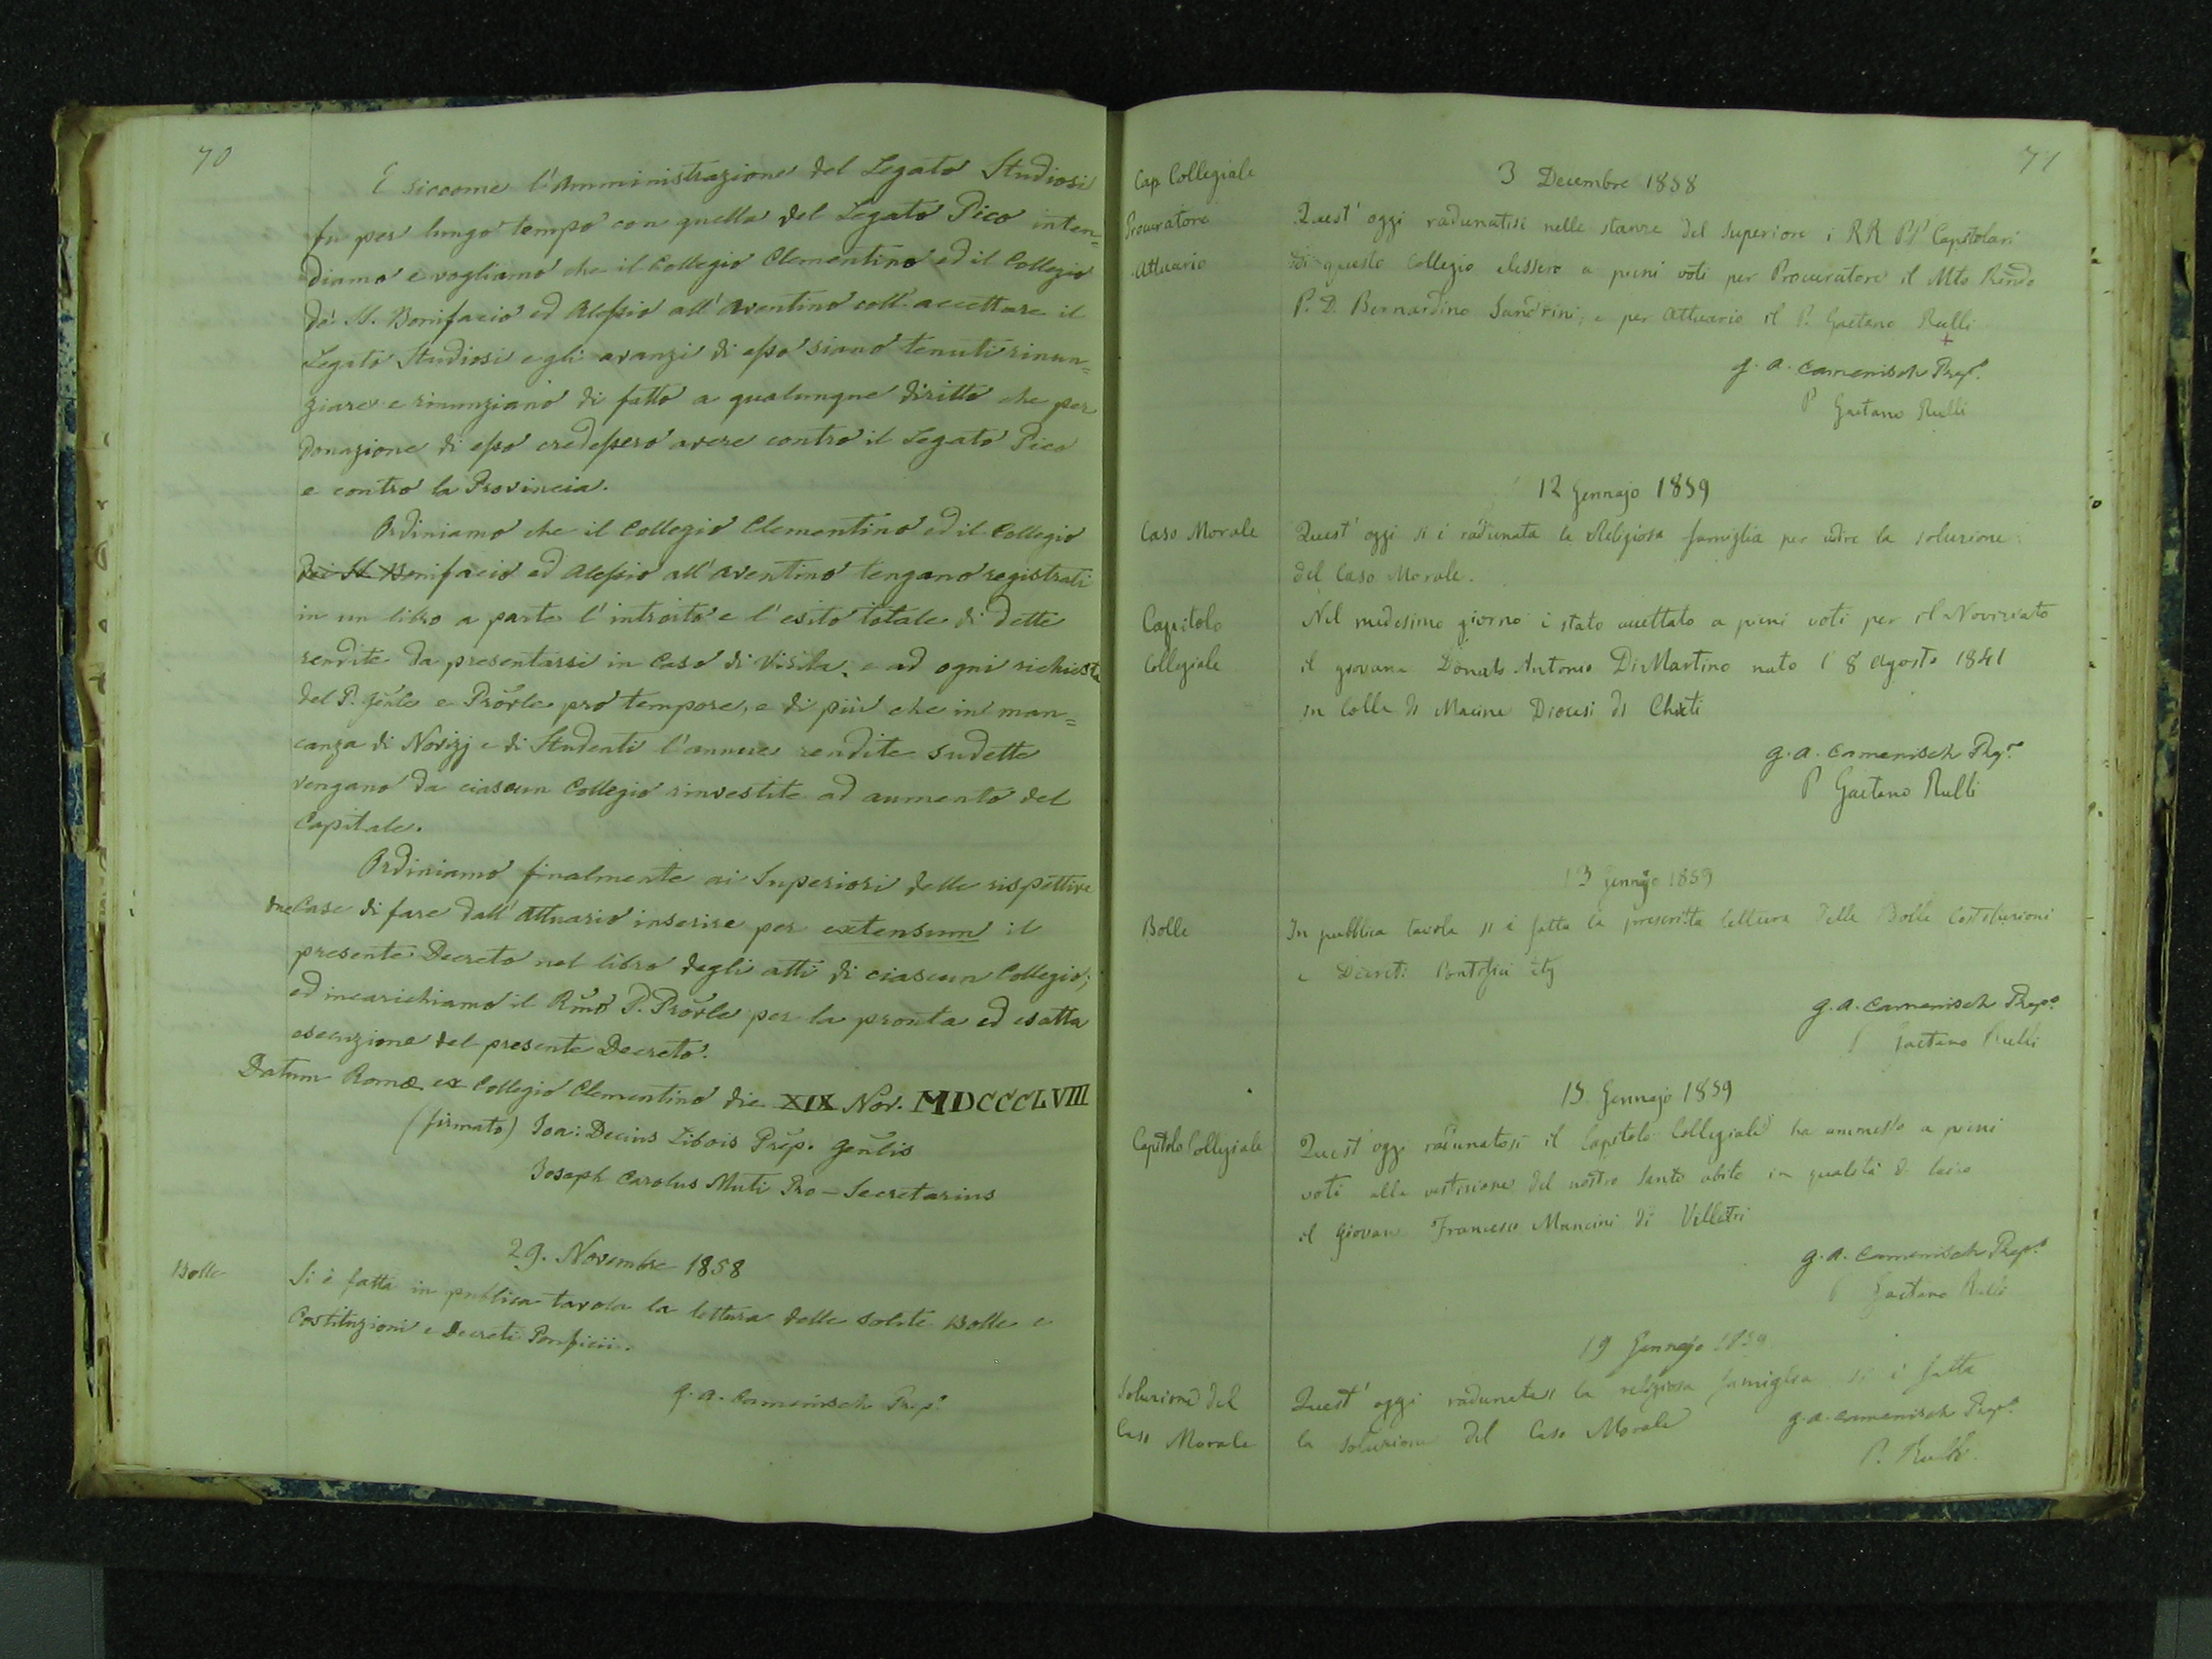 70
E siccome l'Amministrazione del Legato Studiosi
fu per lungo tempo con quella del Legato Pico inten=
diamo e vogliamo che il Collegio Clementino ed il Collegio
de' SS. Bonifacio ed Alessio all'Aventino coll'accettare il
Legato Studiosi e gli avanzi di esso siano tenuti rinun=
ziare e rinunziano di fatto a qualunque diritto che per
donazione di esso credessero avere contro il Legato Pico
e contro la Provincia.
Ordiniamo che il Collegio Clementino ed il Collegio
dei SS. Bonifacio ed Alessio all'Aventino tengano registrati
in un libro a parte l'introito e l'esito totale di dette
rendite da presentarsi in caso di Visita, e ad ogni richiesta
del P. Gen̄le e Prov̄le pro tempore, e di più che in man=
canza di Novizj e di Studenti l'annue rendite sudette
vengano da ciascun Collegio rinvestite ad aumento del
Capitale.
Ordiniamo finalmente ai Superiori delle rispettive
due Case di fare dall'Attuario inserire per extensum il
presente Decreto nel libro degli atti di ciascun Collegio;
ed incarichiamo il Rm̄o P. Prov̄le per la pronta ed esatta
esecuzione del presente Decreto.
Datum Romæ ex Collegio Clementino die XIX Nov. MDCCCLVIII
(firmato) Ioa: Decius Libois Prep. Gen̄lis
Joseph Carolus Muti Pro-Secretarius
29. Novembre 1858
Bolle
Si è fatta in publica tavola la lettura delle solite Bolle e
Costituzioni e Decreti Ponficii.
G. A. Camenisch Prep.º
71
3 Decembre 1858
Cap. Collegiale
Procuratore
Attuario
Quest'oggi radunatisi nelle stanze del Superiore i RR PP Capitolari
di questo Collegio elessero a pieni voti per Procuratore il Mto Rendo
P. D. Bernardino Sandrini, e per Attuario il P. Gaetano Rulli
G. A. Camenisch Prep.º
P Gaetano Rulli
12 Gennajo 1859
Caso Morale
Quest'oggi si è radunata la Religiosa famiglia per udire la soluzione
del Caso Morale.
Capitolo
Collegiale
Nel medesimo giorno è stato accettato a pieni voti per il Noviziato
il giovane Donato Antonio Di Martino nato l' 8 Agosto 1841
in Colle di Macine Diocesi di Chieti
G. A. Camenisch Prep.º
P Gaetano Rulli
13 Gennajo 1859
Bolle
In pubblica tavola si è fatta la prescritta lettura delle Bolle Costituzioni
e Decreti Pontificii
G. A. Camenisch Prep.º
P Gaetano Rulli
15 Gennajo 1859
Capitolo Collegiale
Quest'oggi radunatosi il Capitolo Collegiale ha ammesso a pieni
voti alla vestizione del nostro Santo abito in qualità di laico
il Giovane Francesco Mancini di Villetri
G. A. Camenisch Prep.º
P Gaetano Rulli
19 Gennajo 1859
Soluzione del
Caso Morale
Quest'oggi radunatasi la religiosa famiglia si è fatta
la soluzione del Caso Morale
G. A. Camenisch Prep.º
P. Rulli